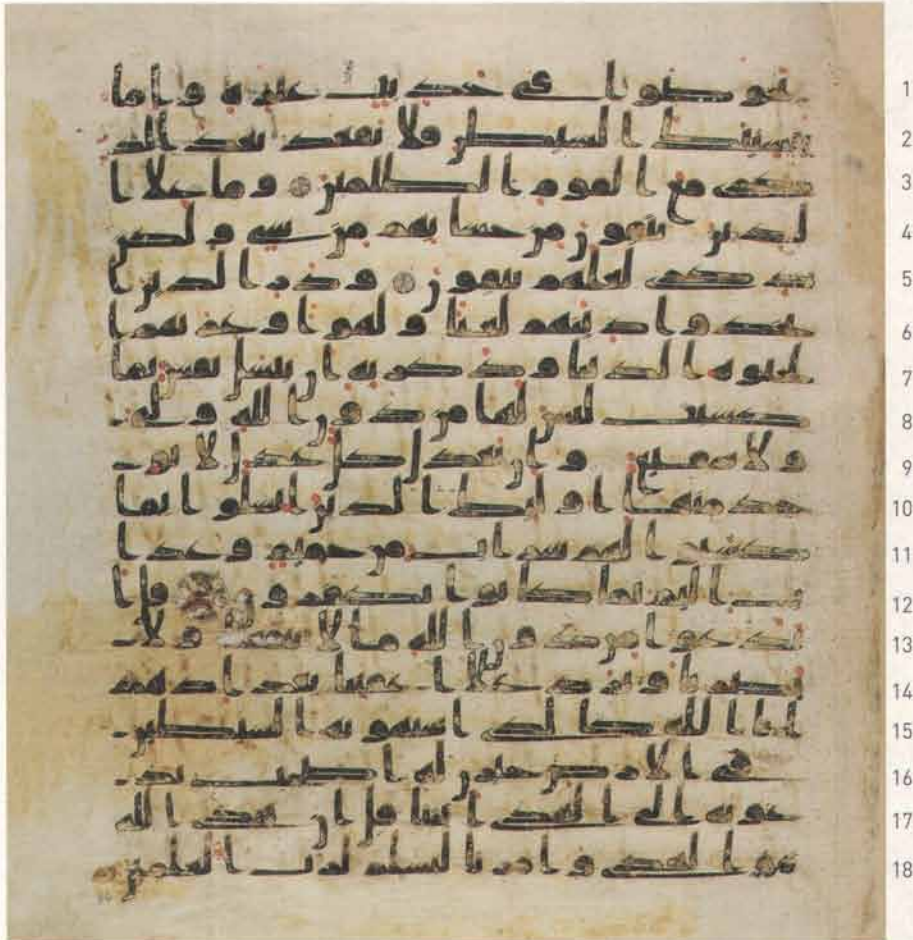 يخوضوا في حديث غيره واما 1
ينسينك الشيطن فلا تقعد بعد الذ 2
كرى مع القوم الظلمين وما على ا 3
لذين يتقون من حسابهم من شيء ولكن 4
ذكرى لعلهم يتقون وذر الذين ا 5
تخذوا دينهم لعبا ولهوا وغرتهم ا 6
لحيوة الدنيا وذكر به ان تبسل نفس بما 7
كسبت ليس لها من دون الله ولي 8
ولا شفيع وان تعدل كل عدل لا يؤ 9
خذ منها اولئك الذين ابسلوا بما 10
كسبوا لهم شراب من حميم وعذا 11
ب اليم بما كانوا يكفرون قل ا 12
ندعوا من دون الله ما لا ينفعنا ولا 13
يضرنا ونرد على اعقبنا بعد اذ هد 14
ينا الله كالذي استهوته الشيطين 15
في الارض حيرن له اصحب يد 16
عونه الى الهدى ائتنا قل ان هدى الله 17
هو الهدى وامرنا لنسلم لرب العلمين 18